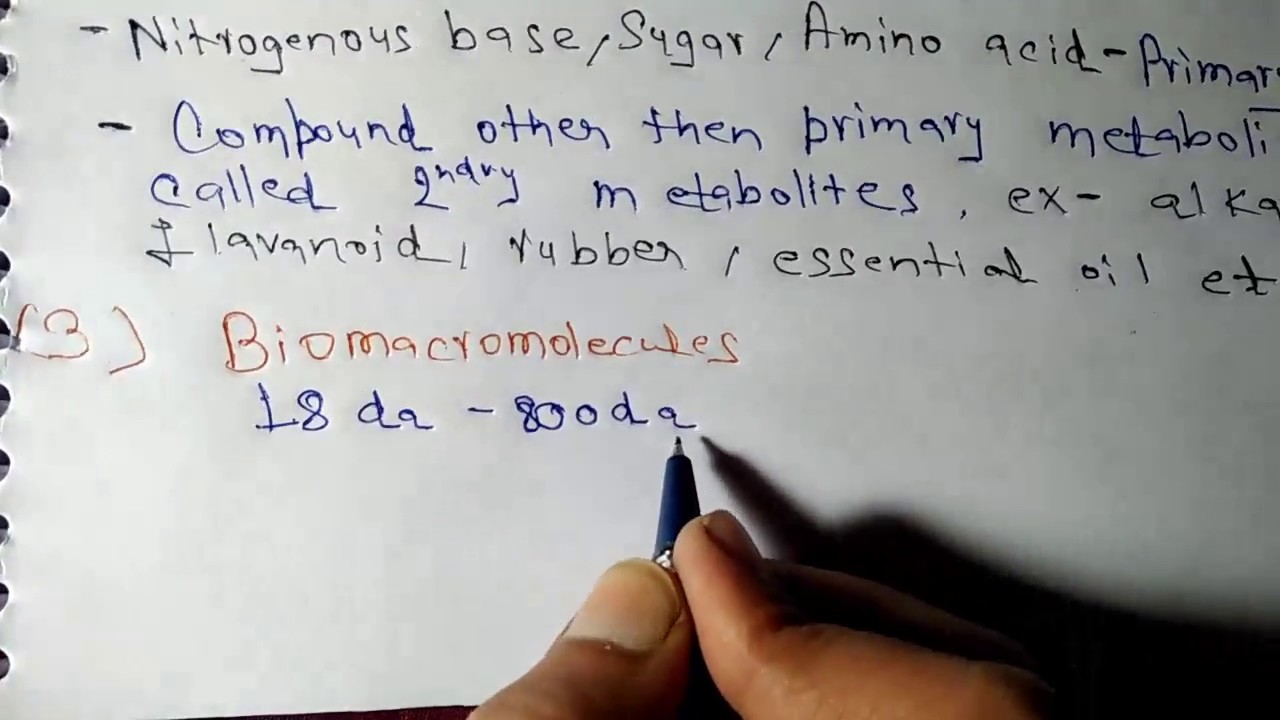 - Nitrogenous base, Sugar, Amino acid - Primar
- Compound other then primary metaboli
called 2ndry metabolites, ex- alka
flavanoid, rubber, essential oil et
(3) Biomacromolecules
18 da - 800 da